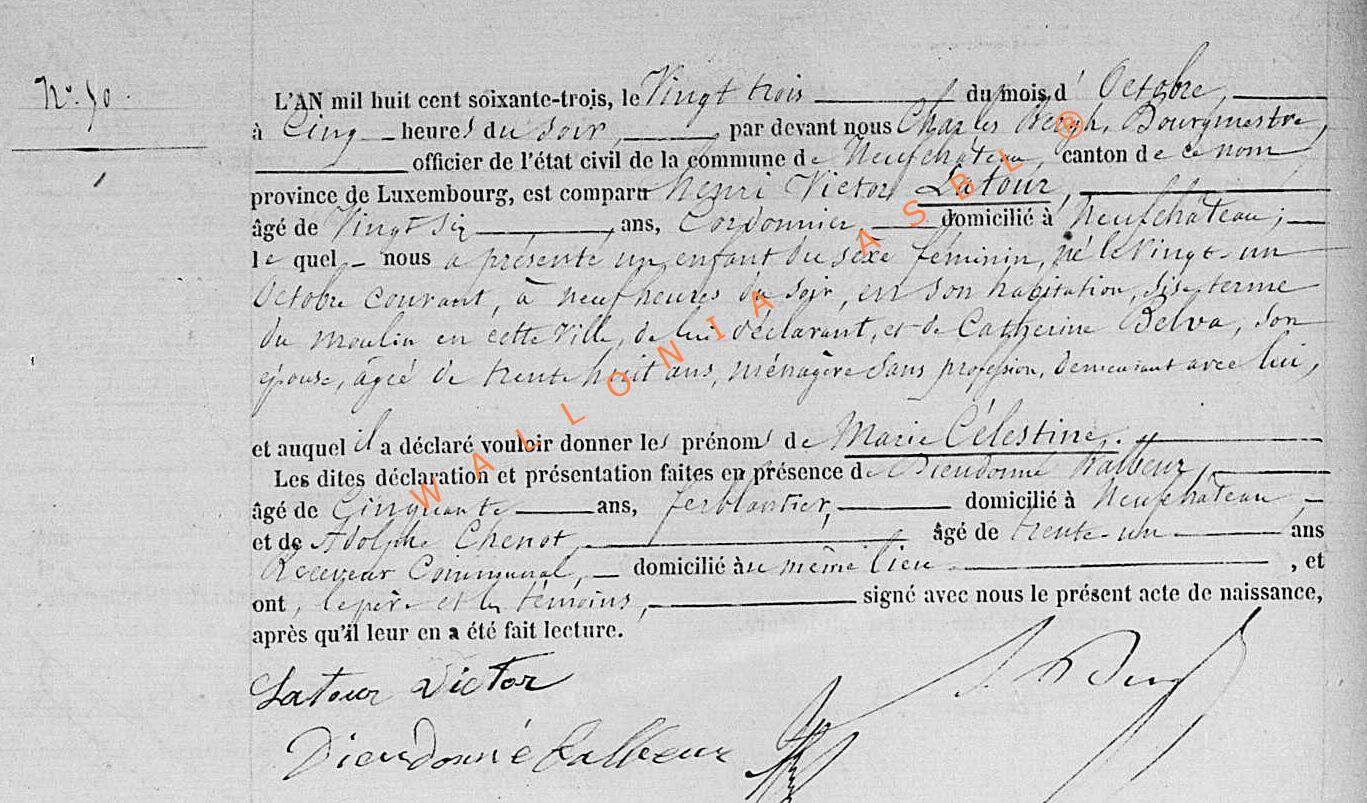 N° 50.
L'AN mil huit cent soixante-trois, le Vingt trois du mois d' Octobre,
à Cinq heures du soir, par devant nous Charles Bergh, Bourgmestre,
officier de l'état civil de la commune de Neufchâteau, canton de ce nom
province de Luxembourg, est comparu Henri Victor Latour,
âgé de Vingt six ans, Cordonnier, domicilié à Neufchâteau;
le quel nous a présenté un enfant du sexe féminin, né le Vingt-un
Octobre courant, à neuf heures du soir, en son habitation, sise terme
du moulin en cette Ville, de lui déclarant, et de Catherine Belva, son
épouse, âgée de trente huit ans, ménagère sans profession, demeurant avec lui,
et auquel il a déclaré vouloir donner les prénoms de Marie Célestine.
Les dites déclaration et présentation faites en présence de Dieudonné Halbeur,
âgé de Cinquante ans, ferblantier, domicilié à Neufchâteau,
et de Adolphe Chenot, âgé de trente-un ans
Receveur Communal, domicilié au même lieu, et
ont, le père et les témoins, signé avec nous le présent acte de naissance,
après qu'il leur en a été fait lecture.
Latour Victor
Dieudonné
WALLONIA ASBL ®